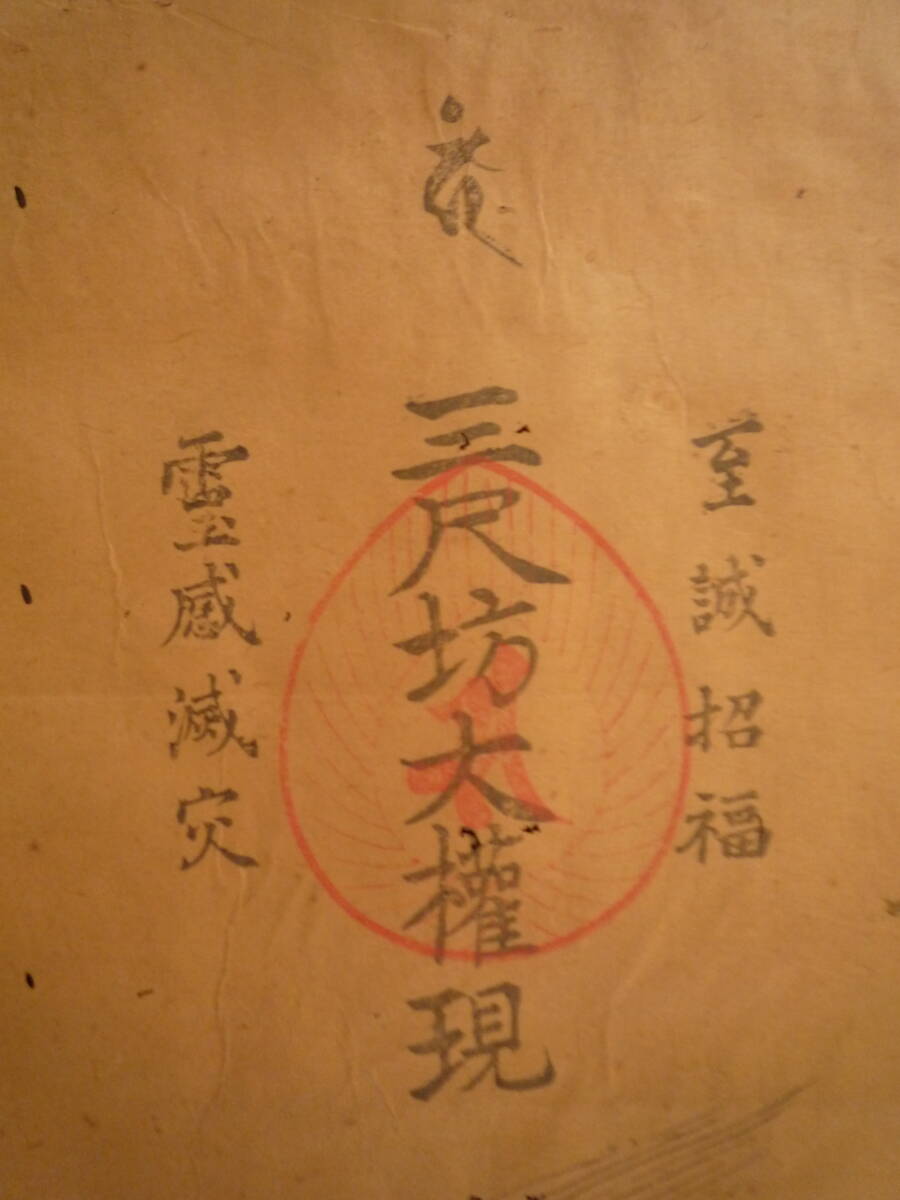 至誠招福
三尺坊大權現
霊感滅災